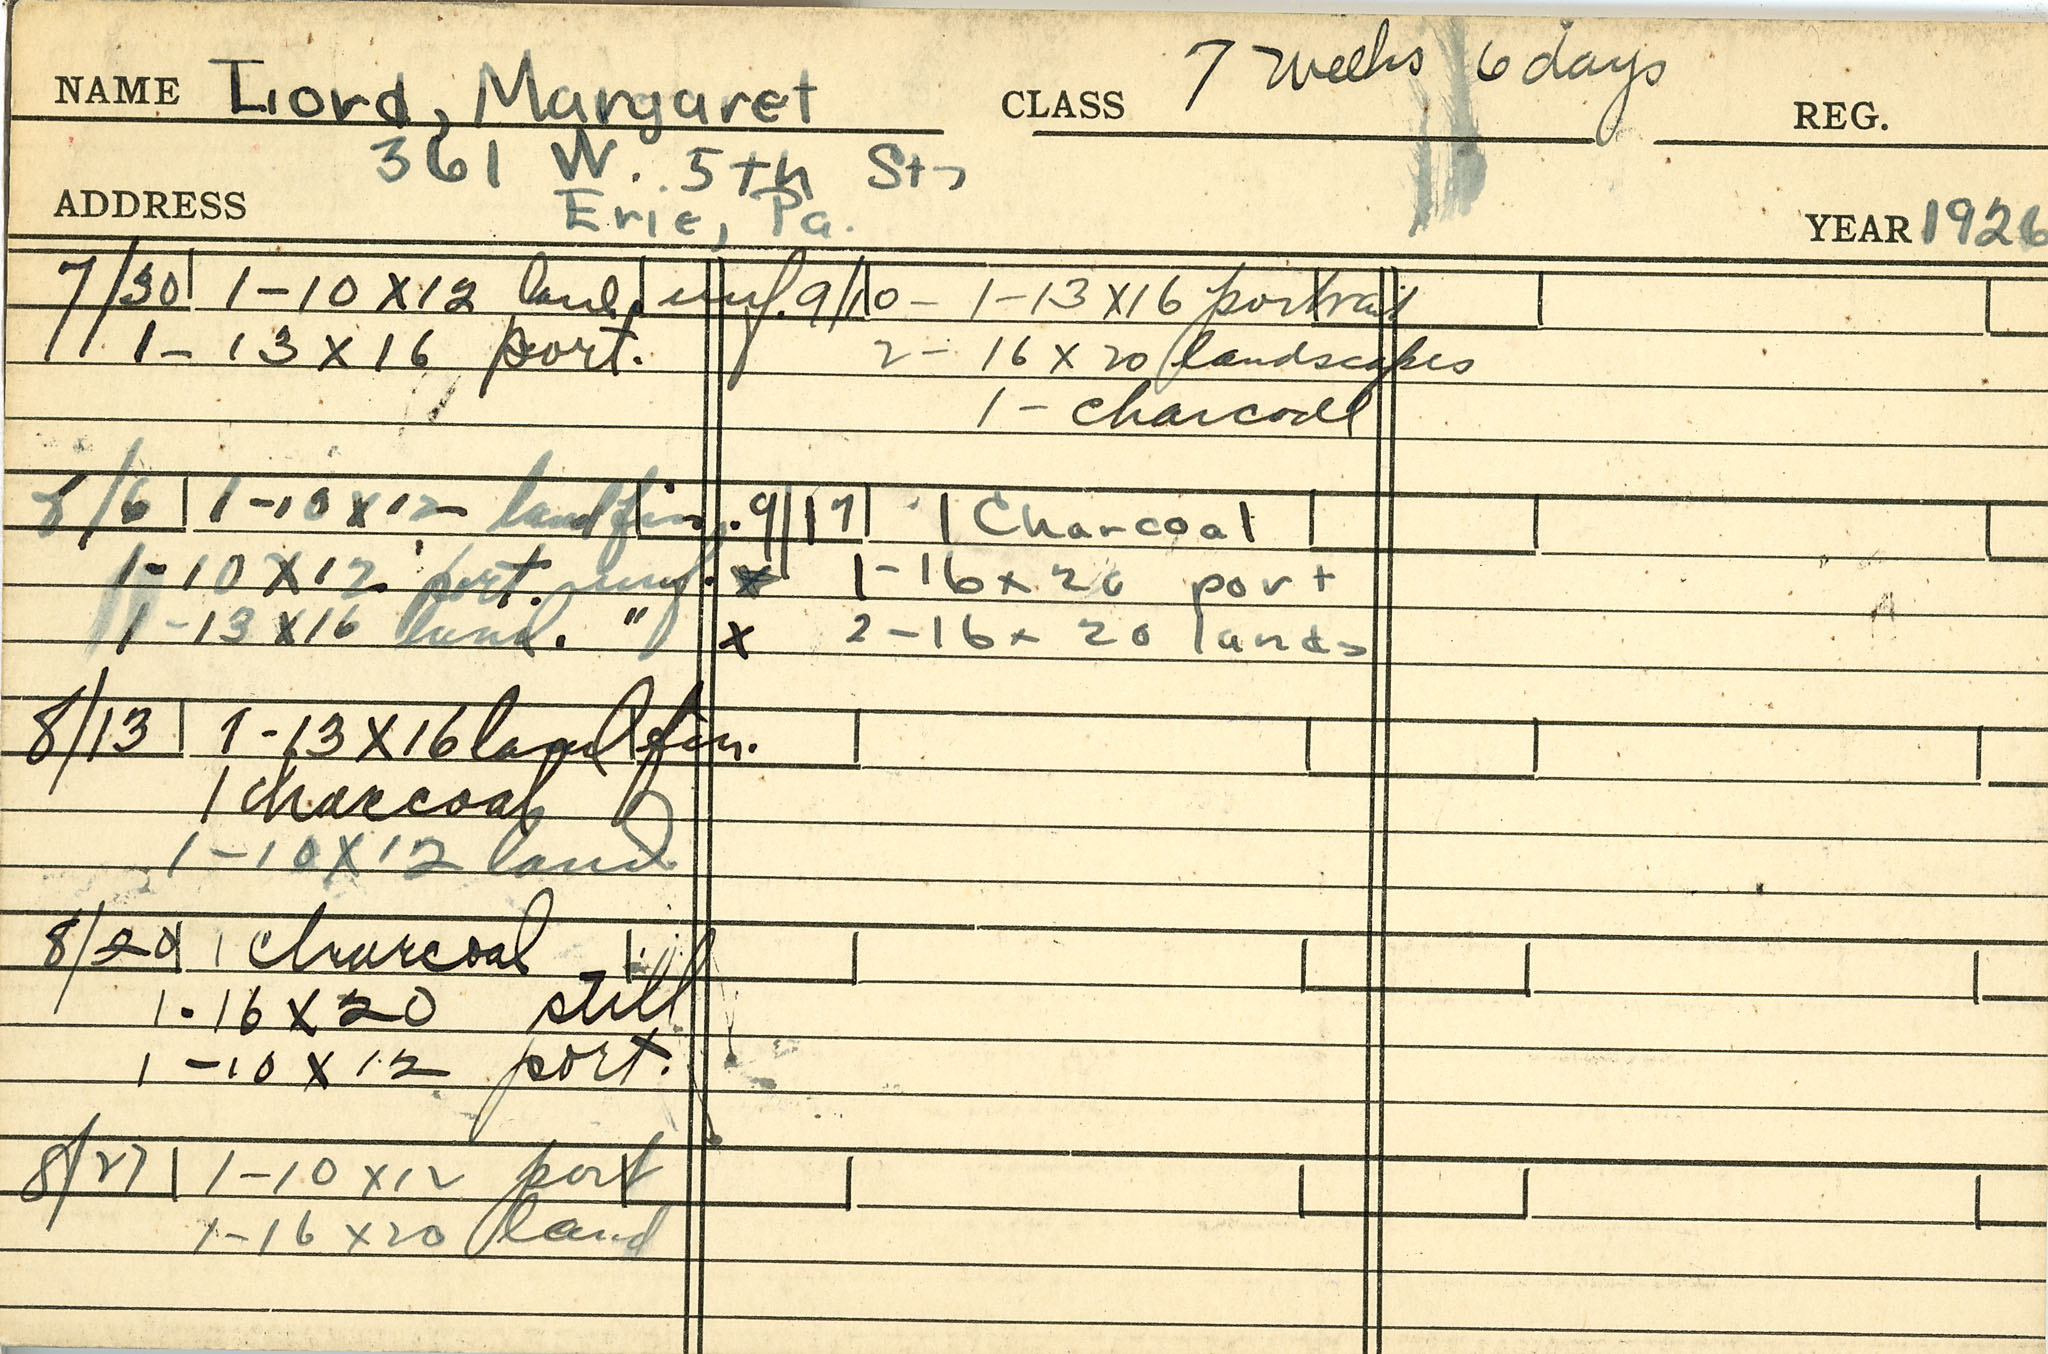 NAME Lord, Margaret CLASS 7 weeks 6 days REG.
361 W. 5th St.
ADDRESS Erie, Pa. YEAR 1926
7/30 1-10 X 12 land. unf.
1- 13 X 16 port.
8/6 1-10 X 12 land fin.
1-10 X 12 port. unf. x
1-13 X 16 land. " x
8/13 1-13 X 16 land fin.
1 charcoal
1-10 X 12 land
8/20 1 charcoal
1-16 X 20 still
1-10 X 12 port.
8/27 1-10 X 12 port
1-16 X 20 land
9/10- 1-13 X 16 portrait
2- 16 X 20 landscapes
1- charcoal
9/17 1 Charcoal
1-16 x 20 port
2-16 x 20 lands